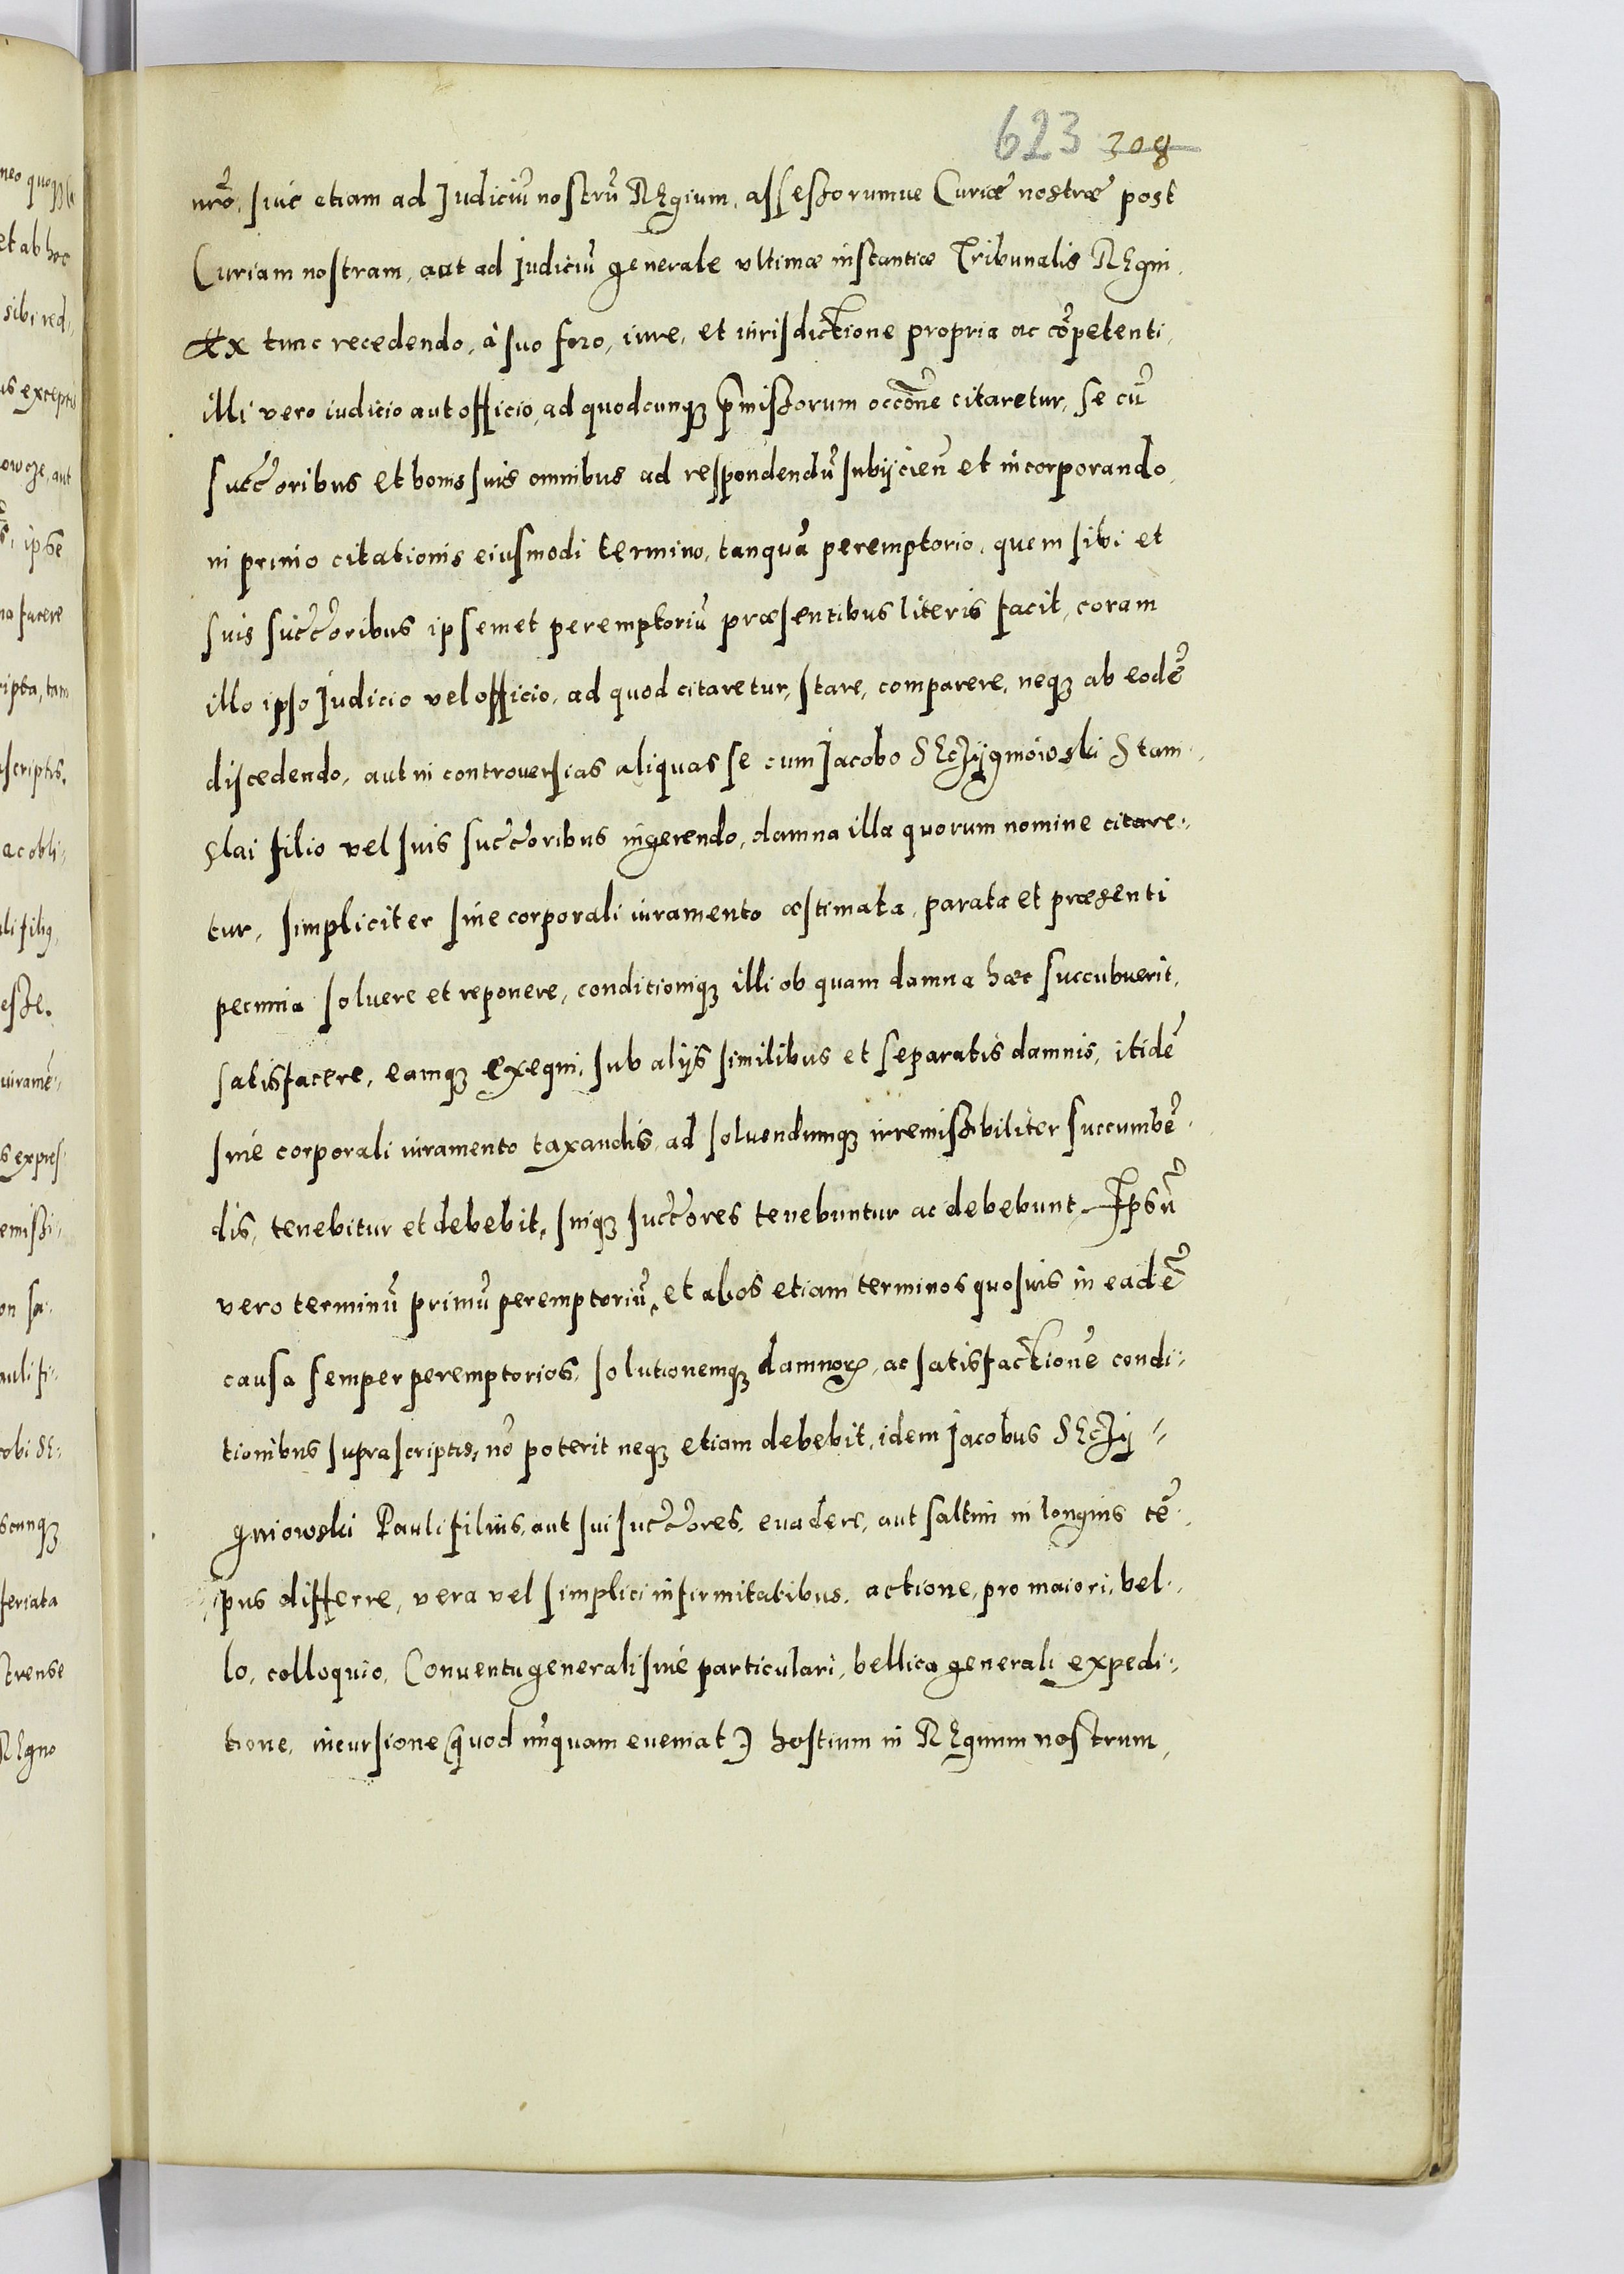 623 308
nrõ, siue etiam ad Judiciũ nostrũ REgium, assessorumue Curiæ nostræ post
Curiam nostram, aut ad Judiciũ generale vltimæ instantiæ Tribunalis REgni,
Ex tunc recedendo, à suo foro, iure, et iurisdictione propria ac cõpetenti,
illi vero iudicio aut officio, ad quodcunqȝ p̃missorum occõne citaretur, se cũ
succ̃oribus et bonis suis omnibus ad respondendũ subijcieñ et incorporando,
in primo citationis eiusmodi termino, tanquã peremptorio, quem sibi et
suis succ̃oribus ipsemet peremptoriũ præsentibus literis facit, coram
illo ipso Judicio vel officio, ad quod citaretur, stare, comparere, neqȝ ab eodẽ
discedendo, aut in controuersias aliquas se cum Jacobo SEcJygniowski Stani-
slai filio vel suis succ̃oribus ingerendo, damna illa quorum nomine citare-
tur, simpliciter sine corporali iuramento æstimata, parata et præsenti
pecunia soluere et reponere, conditioniqȝ illi ob quam damna hæc succubuerit,
satisfacere, eamqȝ exequi, sub alijs similibus et separatis damnis, itidẽ
sine corporali iuramento taxandis, ad soluendumqȝ irremissibiliter succumbẽ-
dis, tenebitur et debebit, suiqȝ succ̃ores tenebuntur ac debebunt, Ipsũ
vero terminũ primũ peremptoriũ, et alios etiam terminos quosuis in eadẽ
causa semper peremptorios, solutionemqȝ damnorꝝ, ac satisfactionẽ condi-
tionibus suprascriptis, nõ poterit neqȝ etiam debebit, idem Jacobus SEcJy-
gniowski Pauli filius, aut sui succ̃ores, euadere, aut saltim in longius tẽ-
pus differre, vera vel simplici infirmitatibus, actione, pro maiori, bel-
lo, colloquio, Conuentu generali siue particulari, bellica generali expedi-
tione, incursione (quod nũquam eueniat) hostium in REgnum nostrum,